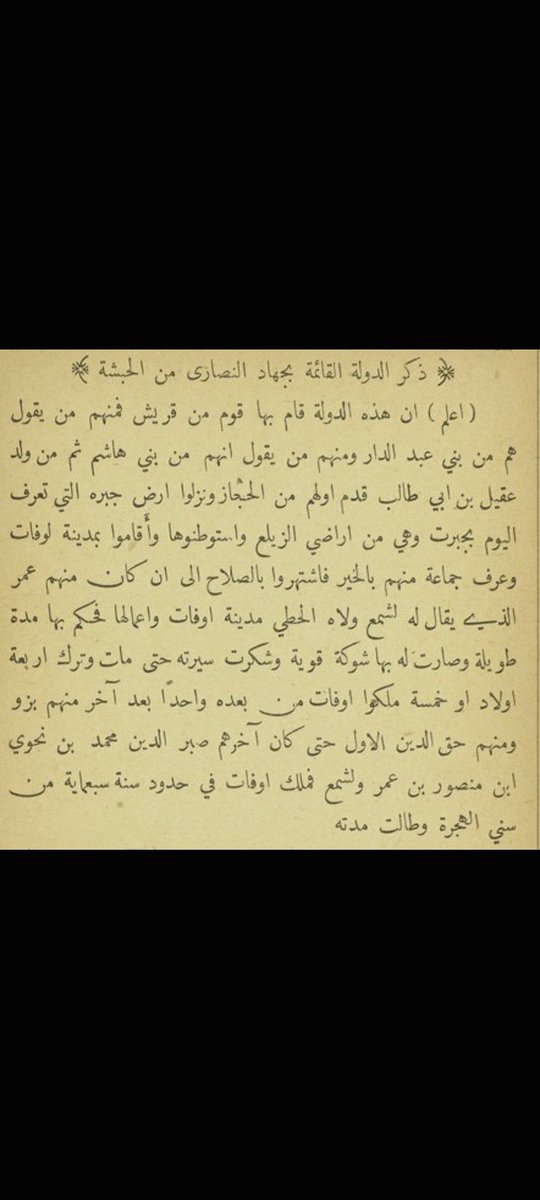 ذكر الدولة القائمة بجهاد النصارى من الحبشة
( اعلم ) ان هذه الدولة قام بها قوم من قريش فمنهم من يقول
هم من بني عبد الدار ومنهم من يقول انهم من بني هاشم ثم من ولد
عقيل بن ابي طالب قدم اولهم من الحجاز ونزلوا ارض جبره التي تعرف
اليوم بجبرت وهي من اراضي الزيلع واستوطنوها وأقاموا بمدينة لوفات
وعرف جماعة منهم بالخير فاشتهروا بالصلاح الى ان كان منهم عمر
الذي يقال له لشمع ولاه الحطي مدينة اوفات واعمالها فحكم بها مدة
طويلة وصارت له بها شوكة قوية وشكرت سيرته حتى مات وترك اربعة
اولاد او خمسة ملكوا اوفات من بعده واحدًا بعد آخر منهم بزو
ومنهم حق الدين الاول حتى كان آخرهم صبر الدين محمد بن نحوي
ابن منصور بن عمر ولشمع فملك اوفات في حدود سنة سبعماية من
سني الهجرة وطالت مدته